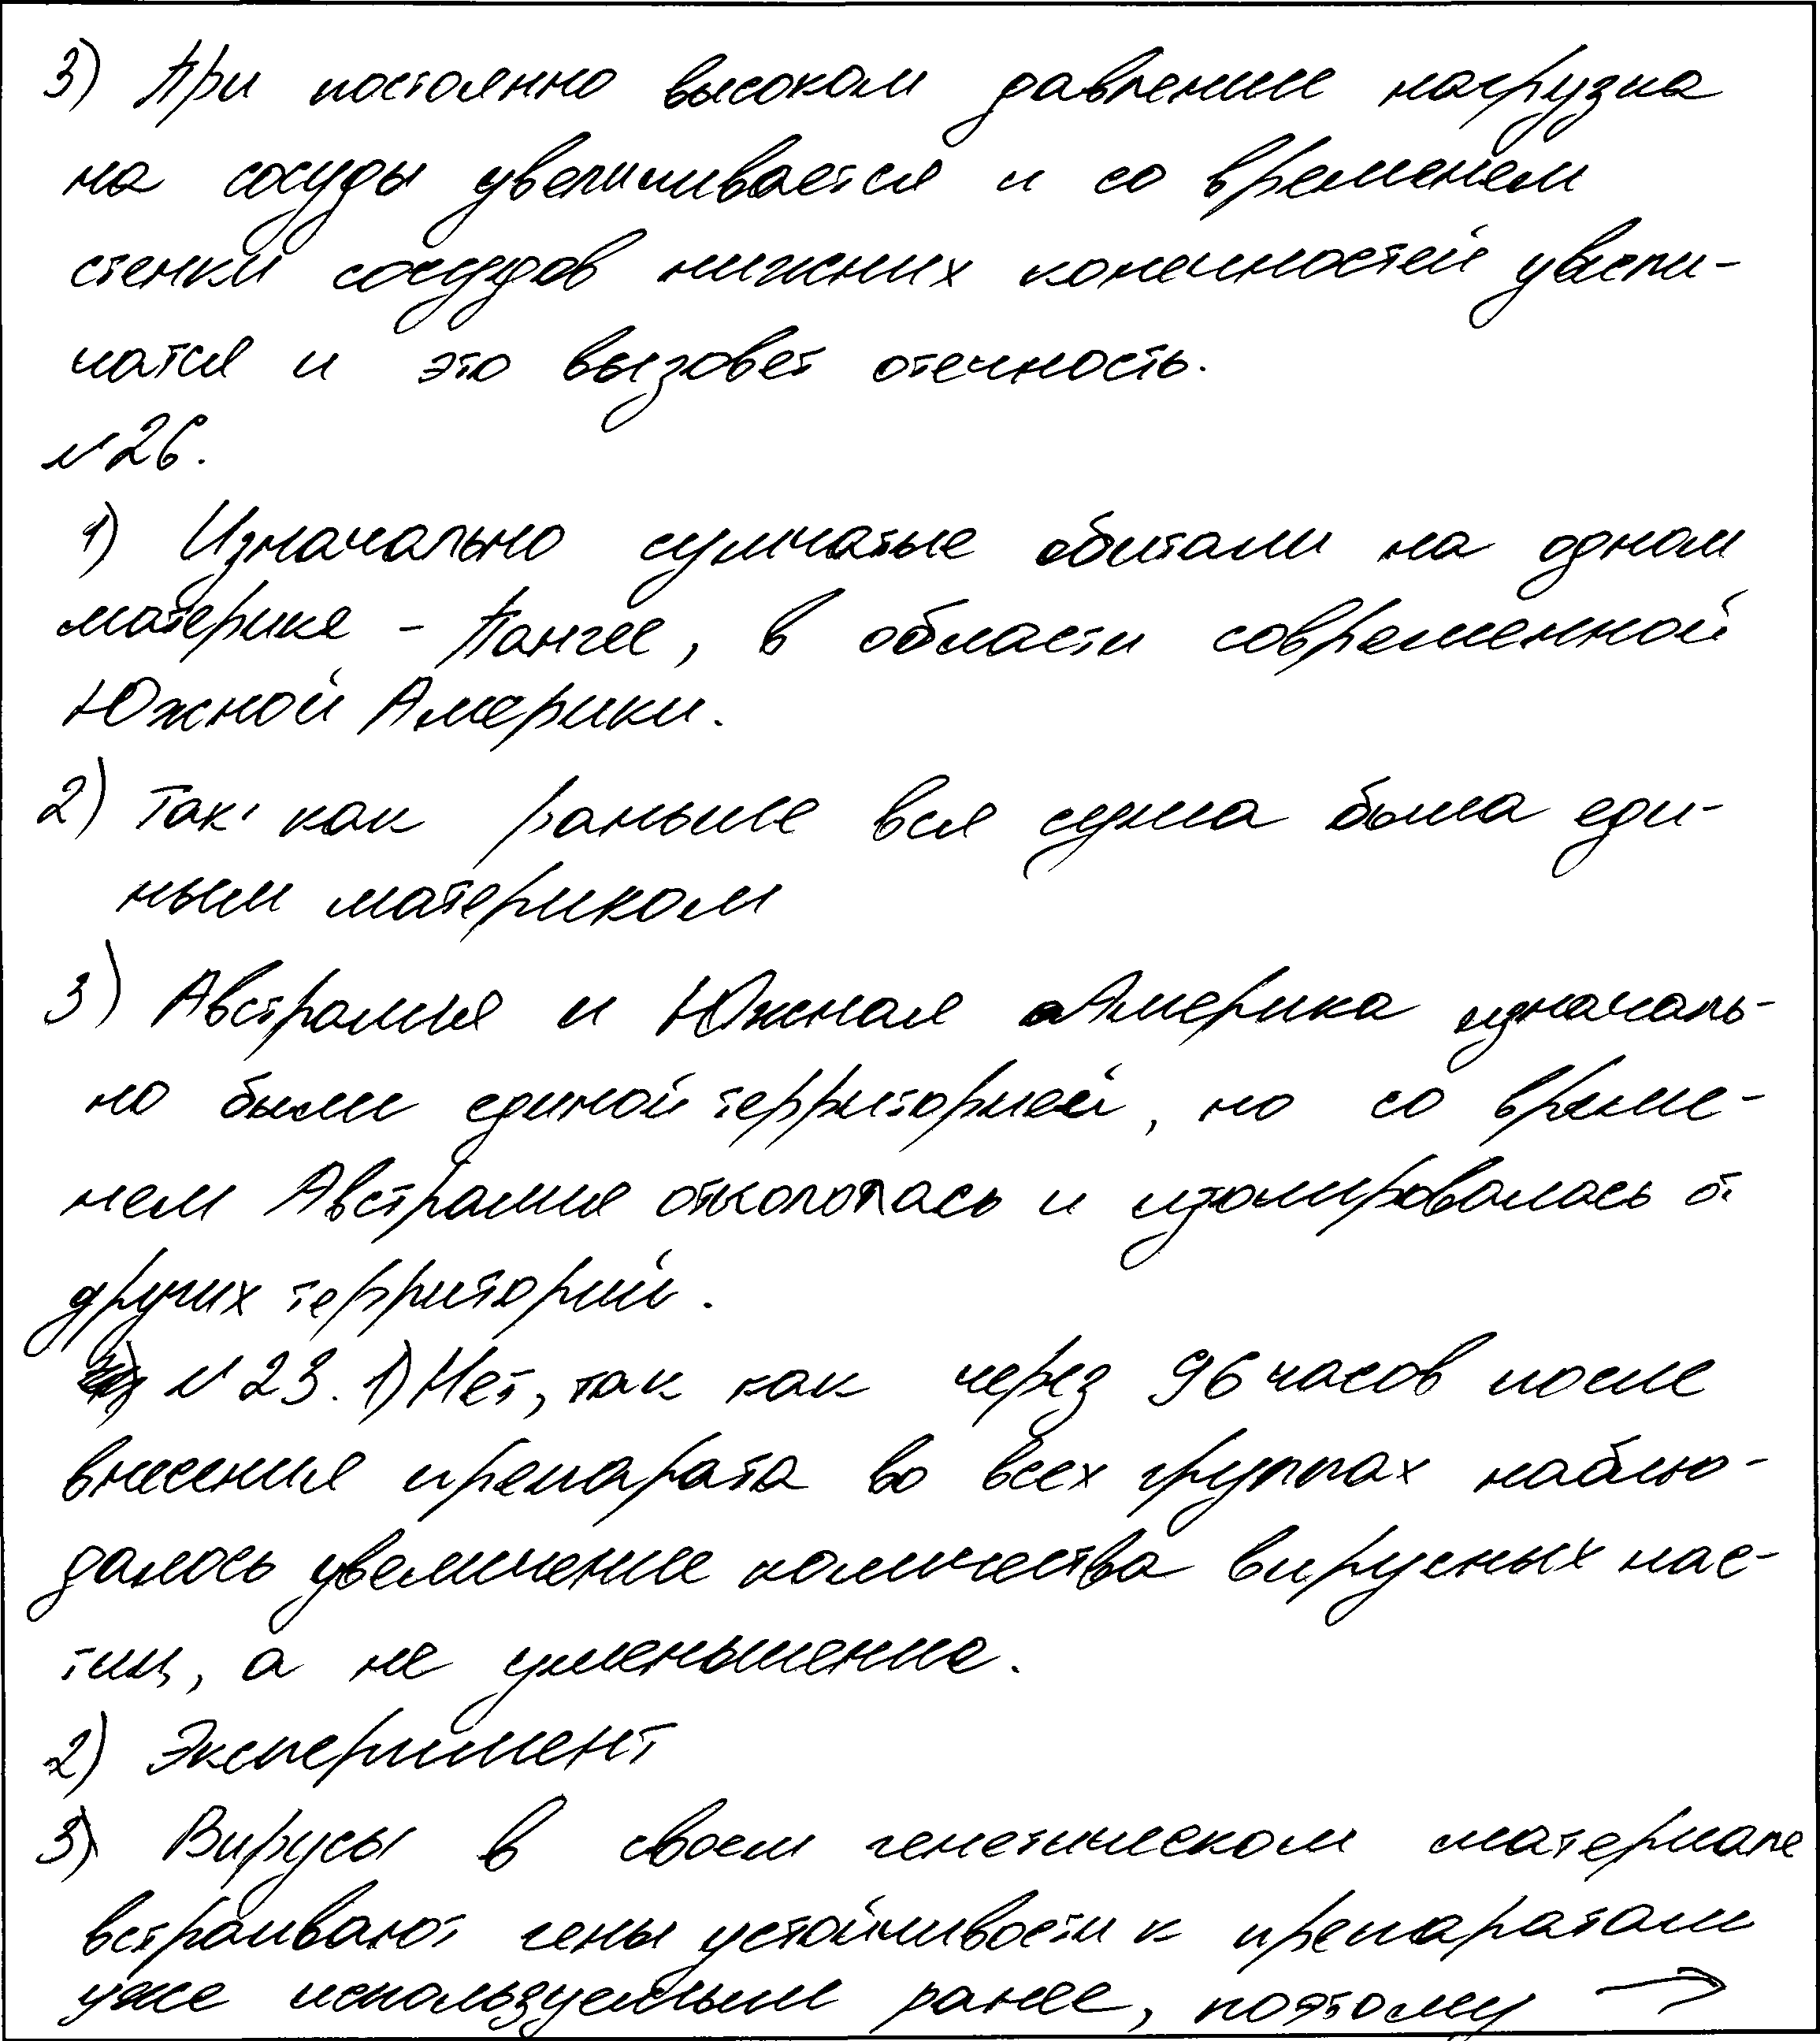 3) При постоянно высоком давление нагрузка
на сосуды увеличивается и со временем
стенки сосудов нижних конечностей увели-
чатся и это вызовет отечность.
№26.
1) Изначально сумчатые обитали на одном
материке - Пангее, в области современной
Южной Америки.
2) Так как раньше вся суша была еди-
ным материком
3) Австралия и Южная Америка изначаль-
но были единой территорией, но со време-
нем Австралия откололась и изолировалась от
других территорий.
№23. 1) Нет, так как через 96 часов после
внесения препарата во всех группах наблю-
далось увеличение количества вирусных час-
тиц, а не уменьшение.
2) Эксперимент
3) Вирусы в своем генетическом материале
встраивают гены устойчивости к препаратам
уже используемым ранее, поэтому →